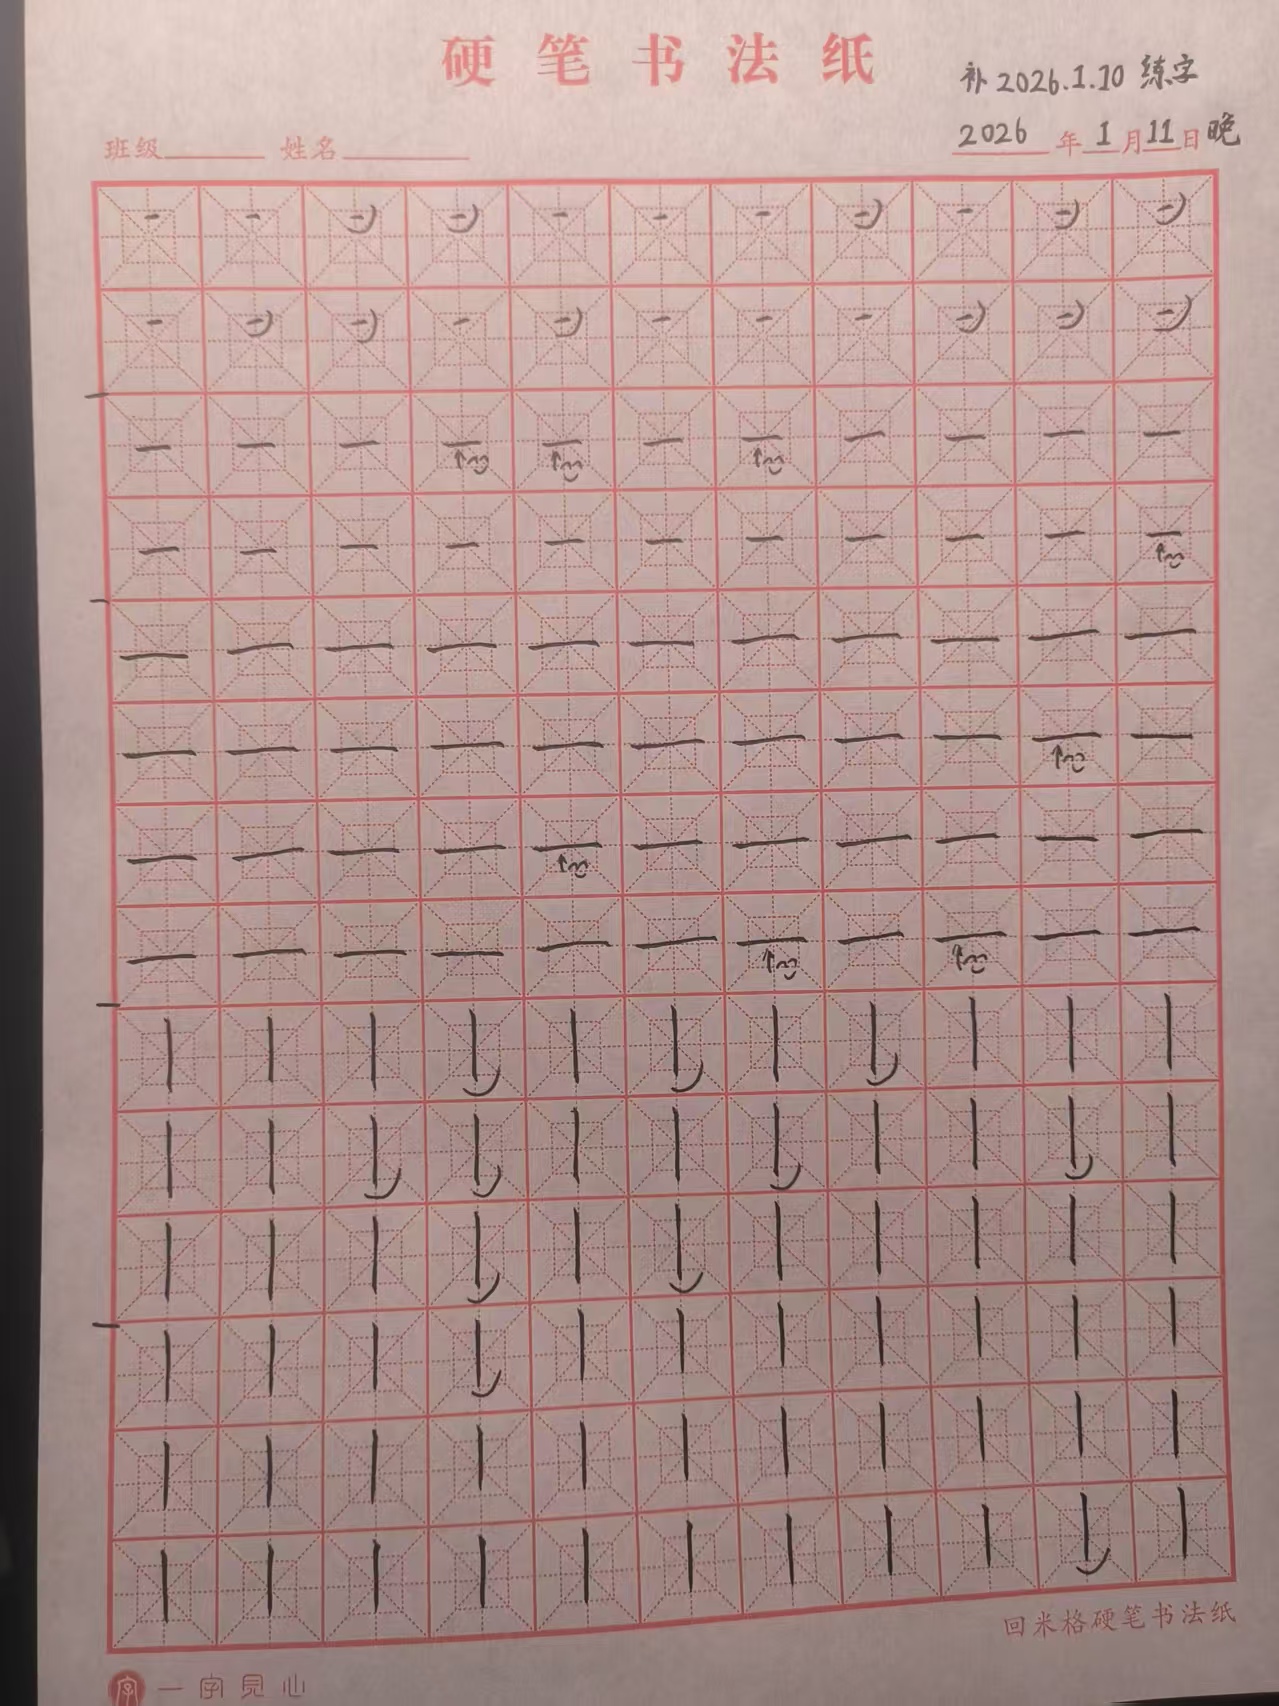 硬笔书法纸
补2026.1.10 练字
班级 姓名 2026年1月11日晚
回米格硬笔书法纸
字 一字見心